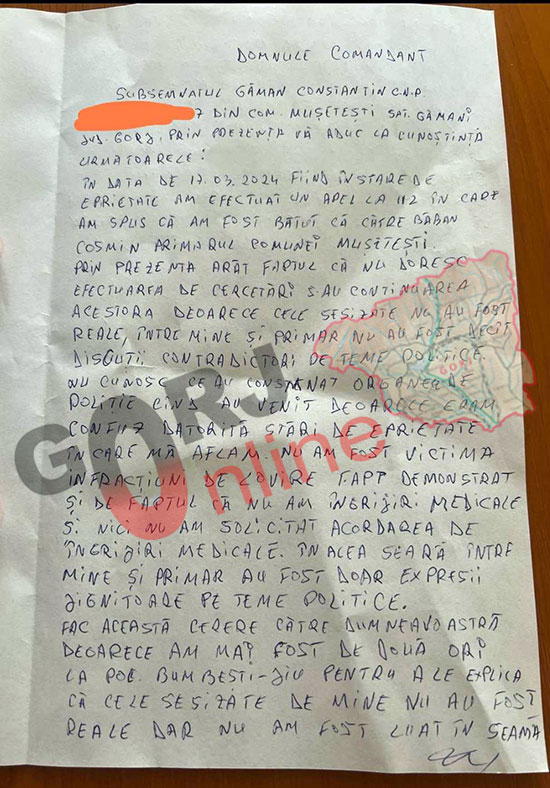 DOMNULE COMANDANT
SUBSEMNATUL GĂMAN CONSTANTIN C.N.P.
7 DIN COM. MUȘETEȘTI SAT. GĂMANI
JUD. GORJ, PRIN PREZENTA VĂ ADUC LA CUNOȘTINȚĂ
URMATOARELE:
ÎN DATA DE 17.03.2024 FIIND ÎN STARE DE
EPRIETATE AM EFECTUAT UN APEL LA 112 ÎN CARE
AM SPUS CĂ AM FOST BĂTUT CĂ CĂTRE BĂBAN
COSMIN PRIMARUL COMUNEI MUSETESTI.
PRIN PREZENTA ARĂT FAPTUL CĂ NU DORESC
EFECTUAREA DE CERCETĂRI SAU CONTINUAREA
ACESTORA DEOARECE CELE SESIZATE NU AU FOST
REALE, ÎNTRE MINE ȘI PRIMAR NU AU FOST DECÎT
DISCUȚII CONTRADICTORI PE TEME POLITICE.
NU CUNOSC CE AU CONSTANAT ORGANELE DE
POLITIE CÎND AU VENIT DEOARELE ERAM
CONFUZ DATORITĂ STĂRI DE EPRIETATE
ÎN CARE MĂ AFLAM. NU AM FOST VICTIMA
INFRACȚIUNI DE LOVIRE FAPT DEMONSTRAT
ȘI DE FAPTUL CĂ NU AM ÎNGRIJIRI MEDICALE
ȘI NICI NU AM SOLICITAT ACORDAREA DE
ÎNGRIJIRI MEDICALE. ÎN ACEA SEARĂ ÎNTRE
MINE ȘI PRIMAR AU FOST DOAR EXPRESII
JIGNITOARE PE TEME POLITICE.
FAC ACEASTĂ CERERE CĂTRE DUMNEAVOASTRĂ
DEOARECE AM MAI FOST DE DOUĂ ORI
LA POL. BUMBESTI-JIU PENTRU A LE EXPLICA
CĂ CELE SESIZATE DE MINE NU AU FOST
REALE DAR NU AM FOST LUAT ÎN SEAMĂ
GORJ
Online